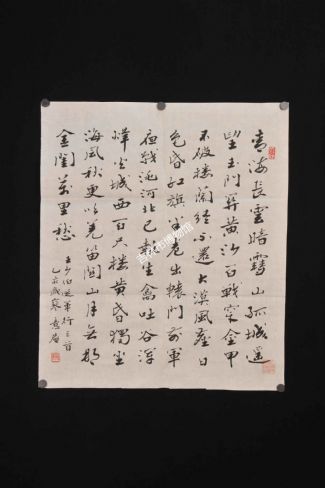 青海长雲暗雪山孤城遥
望玉门関黄沙百戰穿金甲
不破楼蘭终不還大漠風塵日
色昏红旗半卷出轅门前軍
夜戰洮河北已報生擒吐谷渾
烽火城西百尺楼黄昏獨坐
海風秋更吹羌笛関山月無那
金閨萬里愁
王少伯從軍行三首